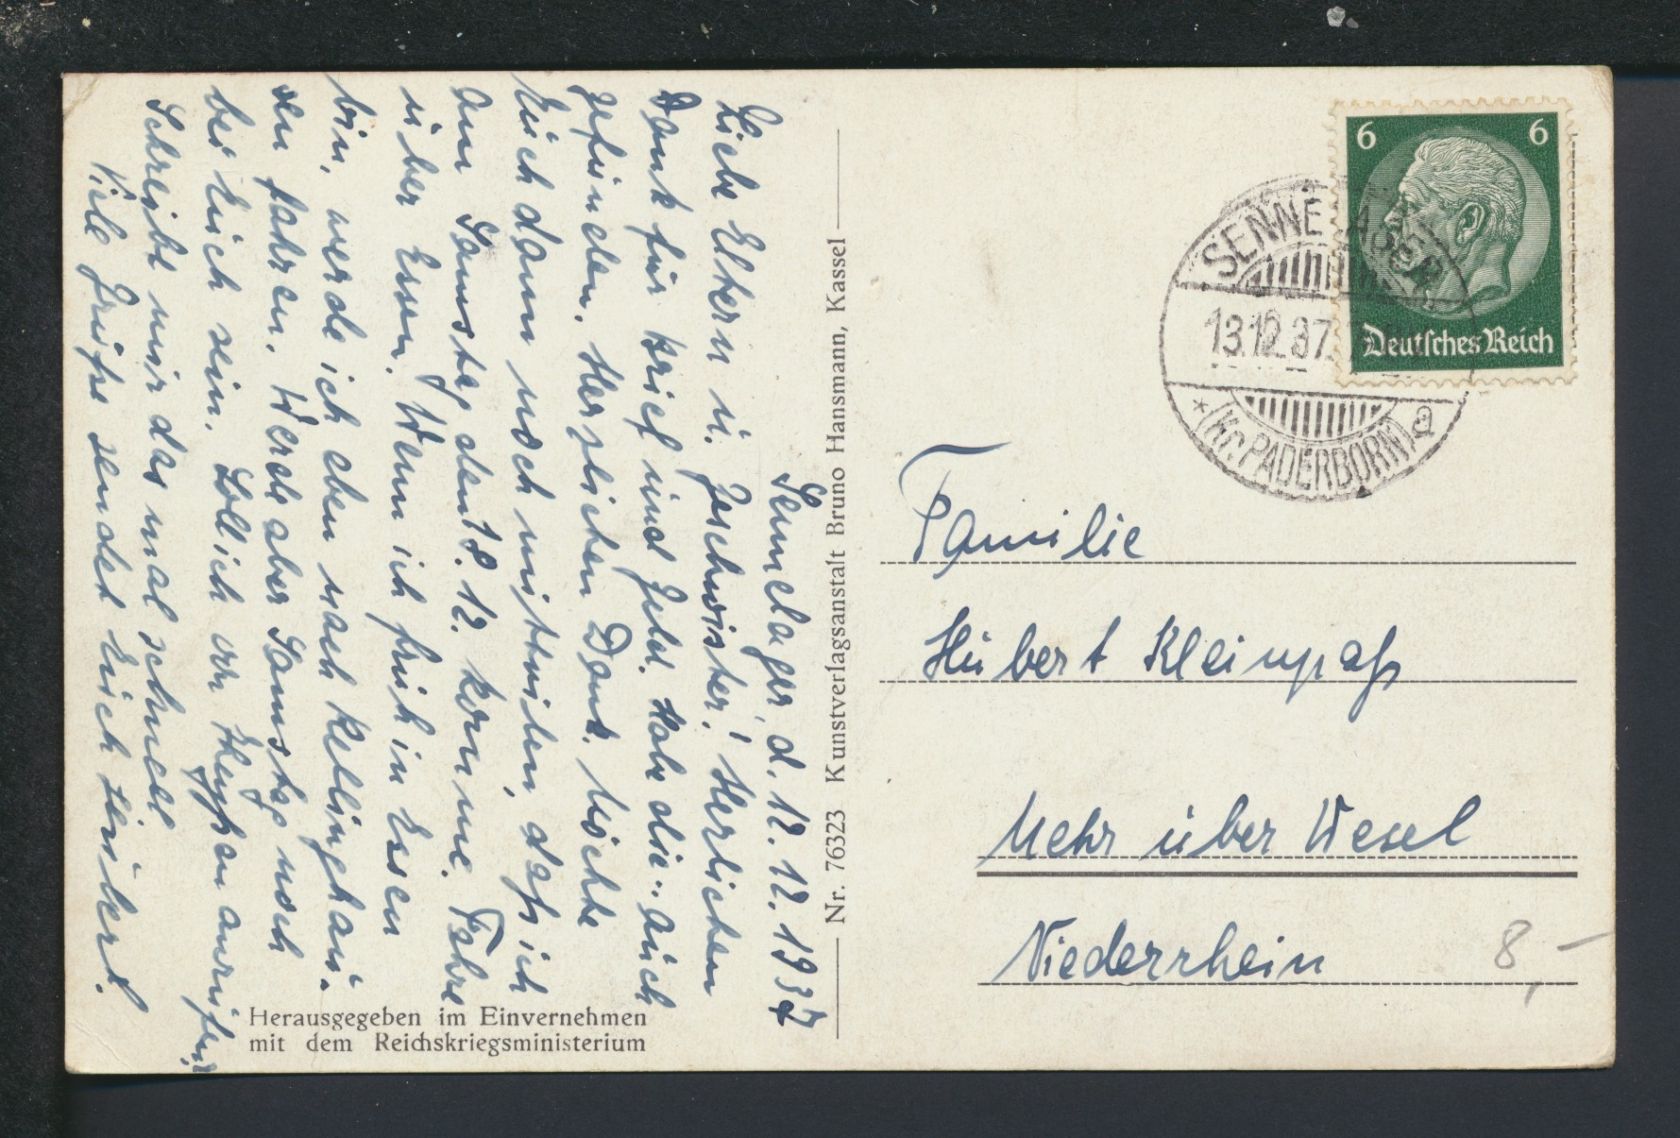 Sennelager, d. 12.12.1937
Liebe Eltern u. Geschwister! Herzlichen
Dank für Brief und Geld. Habe die auch
gefunden. Herzlichen Dank. Möchte
Euch dann noch mitteilen, daß ich
am Samstag den 18.12. komme. Fahre
über Essen. Wenn ich früh in Essen
bin, werde ich eben nach
sen fahren. Werde aber Samstag noch
bei Euch sein. Soll ich anrufen?
Schreibt mir das mal schnell
Viele Grüße sendet Euch
Nr. 76323 Kunstverlagsanstalt Bruno Hansmann, Kassel
Herausgegeben im Einvernehmen
mit dem Reichskriegsministerium
6 6
Deutsches Reich
SENNELAGER
13.12.37
* (Kr. PADERBORN) a
Familie
Hubert Kleinpaß
Mehr über Wesel
Niederrhein
8,–